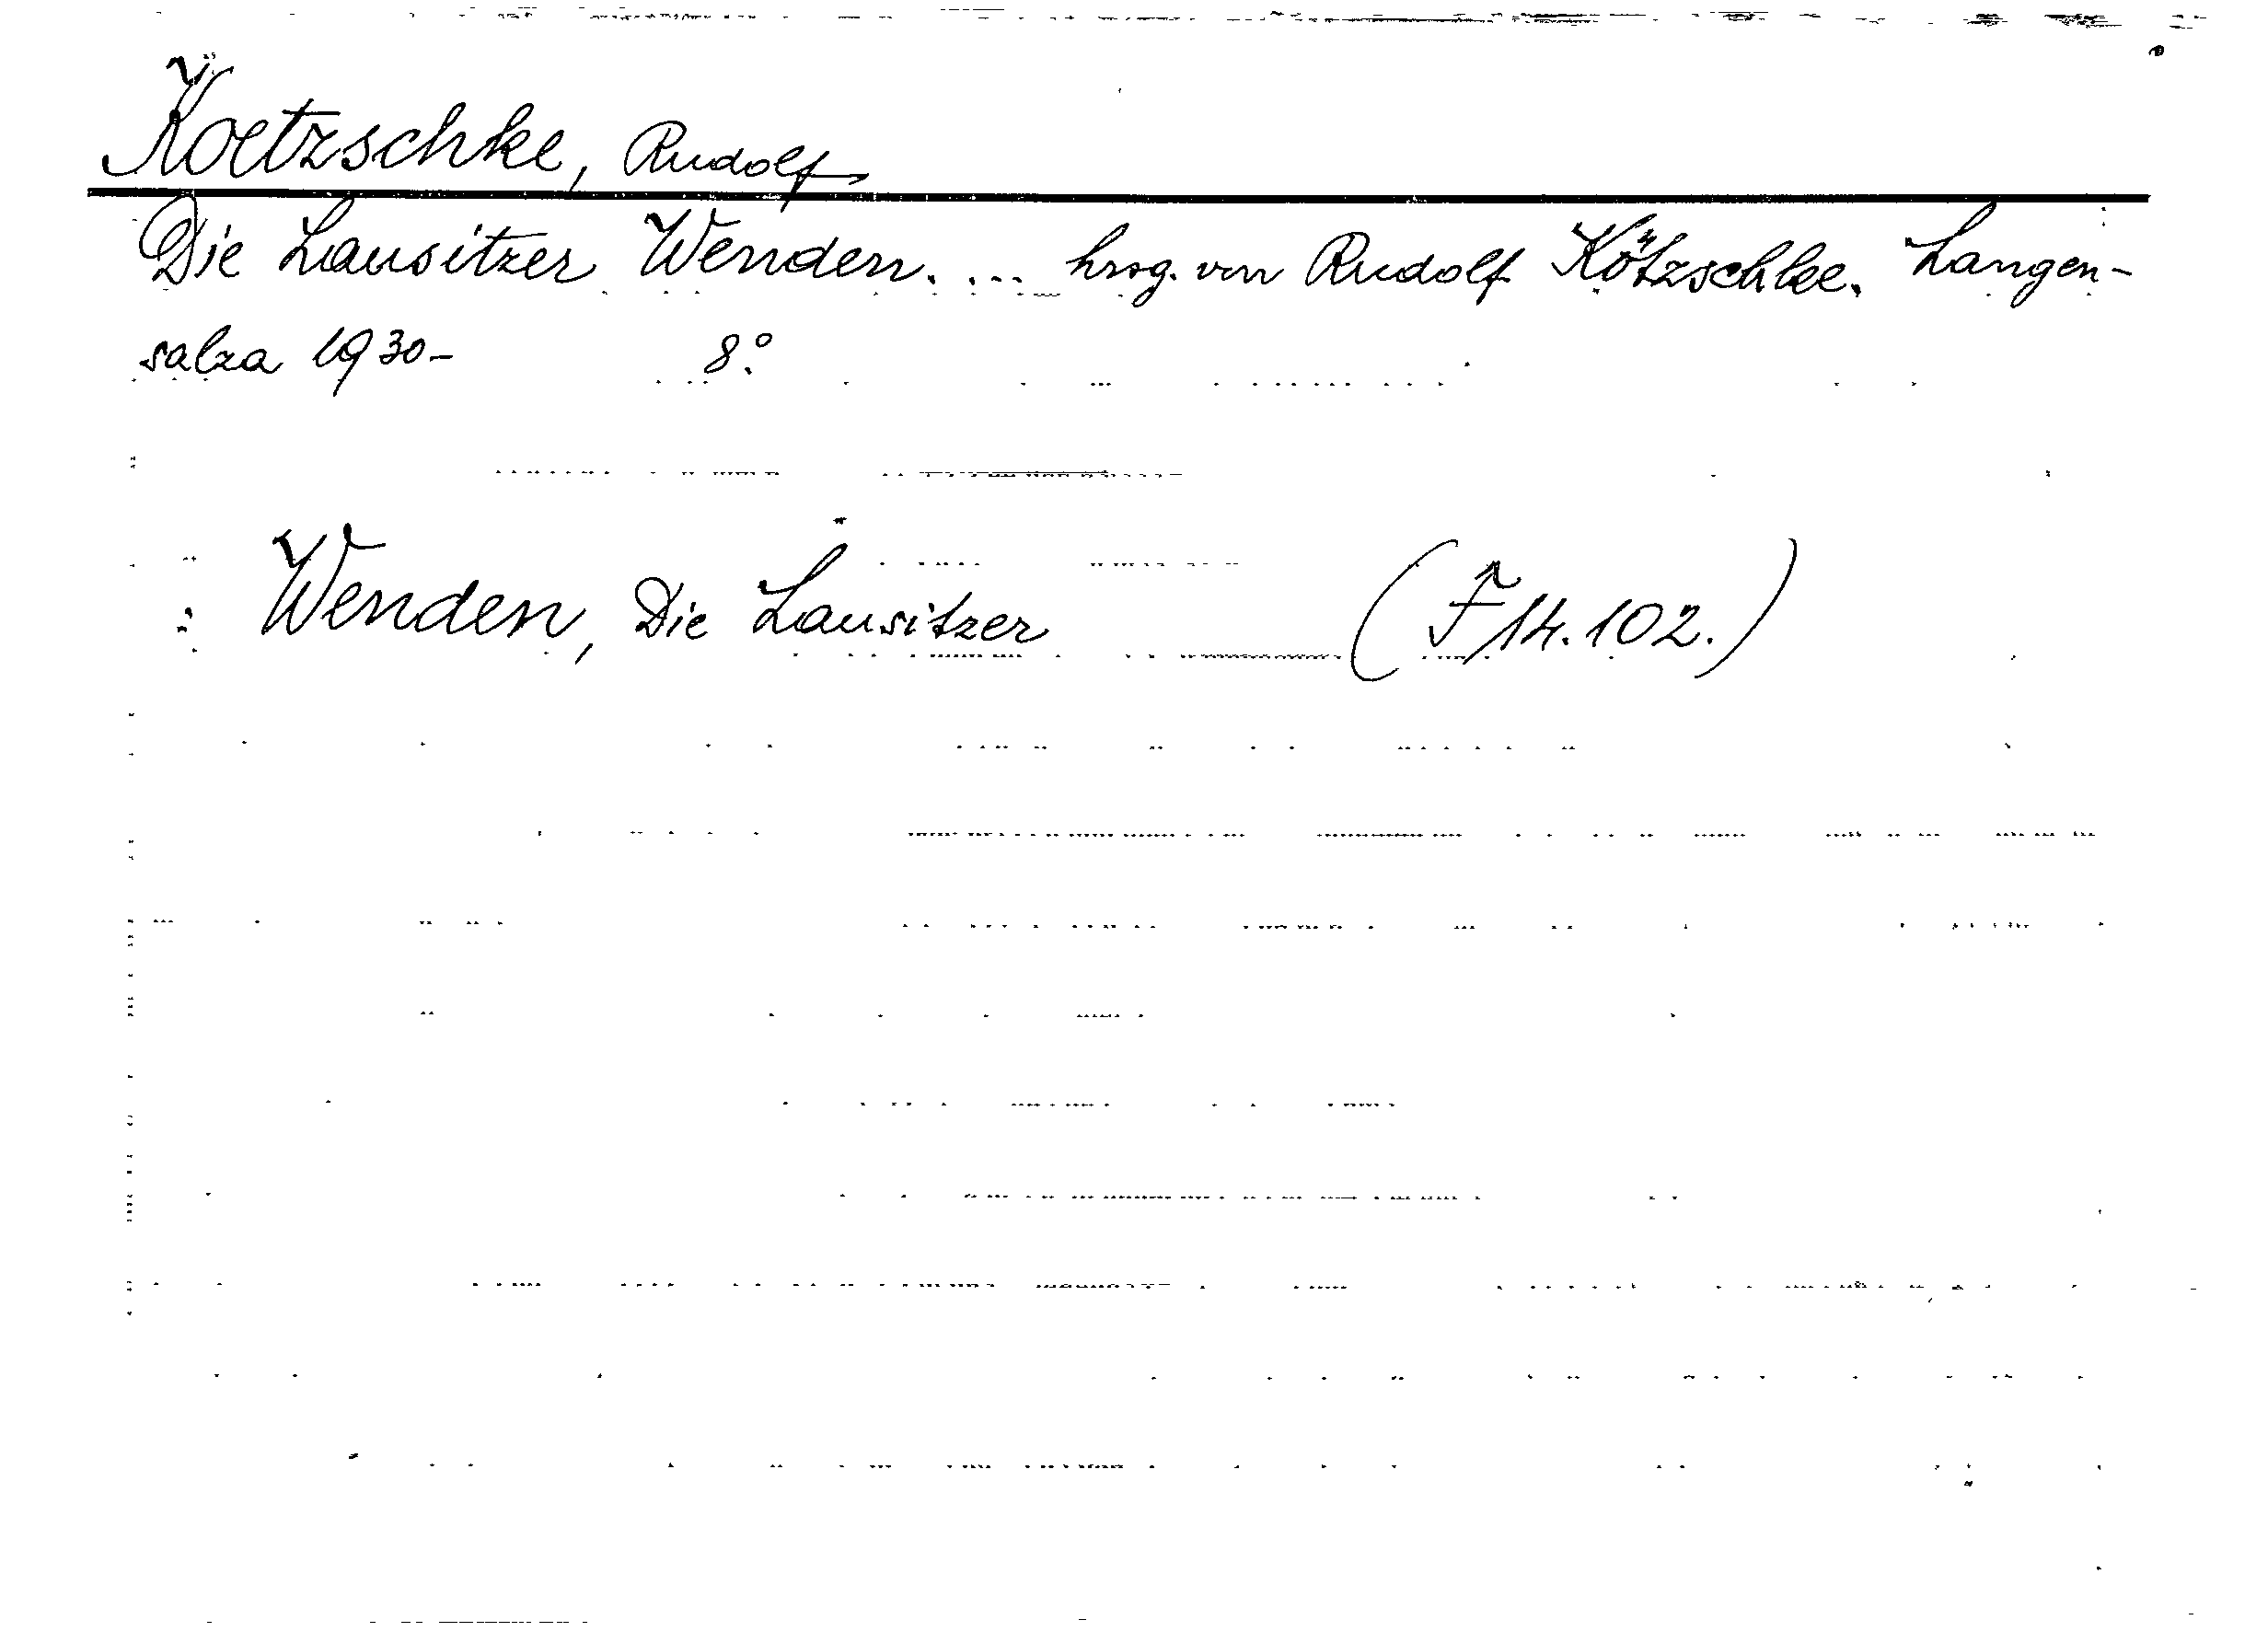 Koetzschke, Rudolf
Die Lausitzer Wenden. ... hrsg. von Rudolf Kötzschke. Langen-
salza 1930- 8°.
Wenden, Die Lausitzer (F 14.102.)